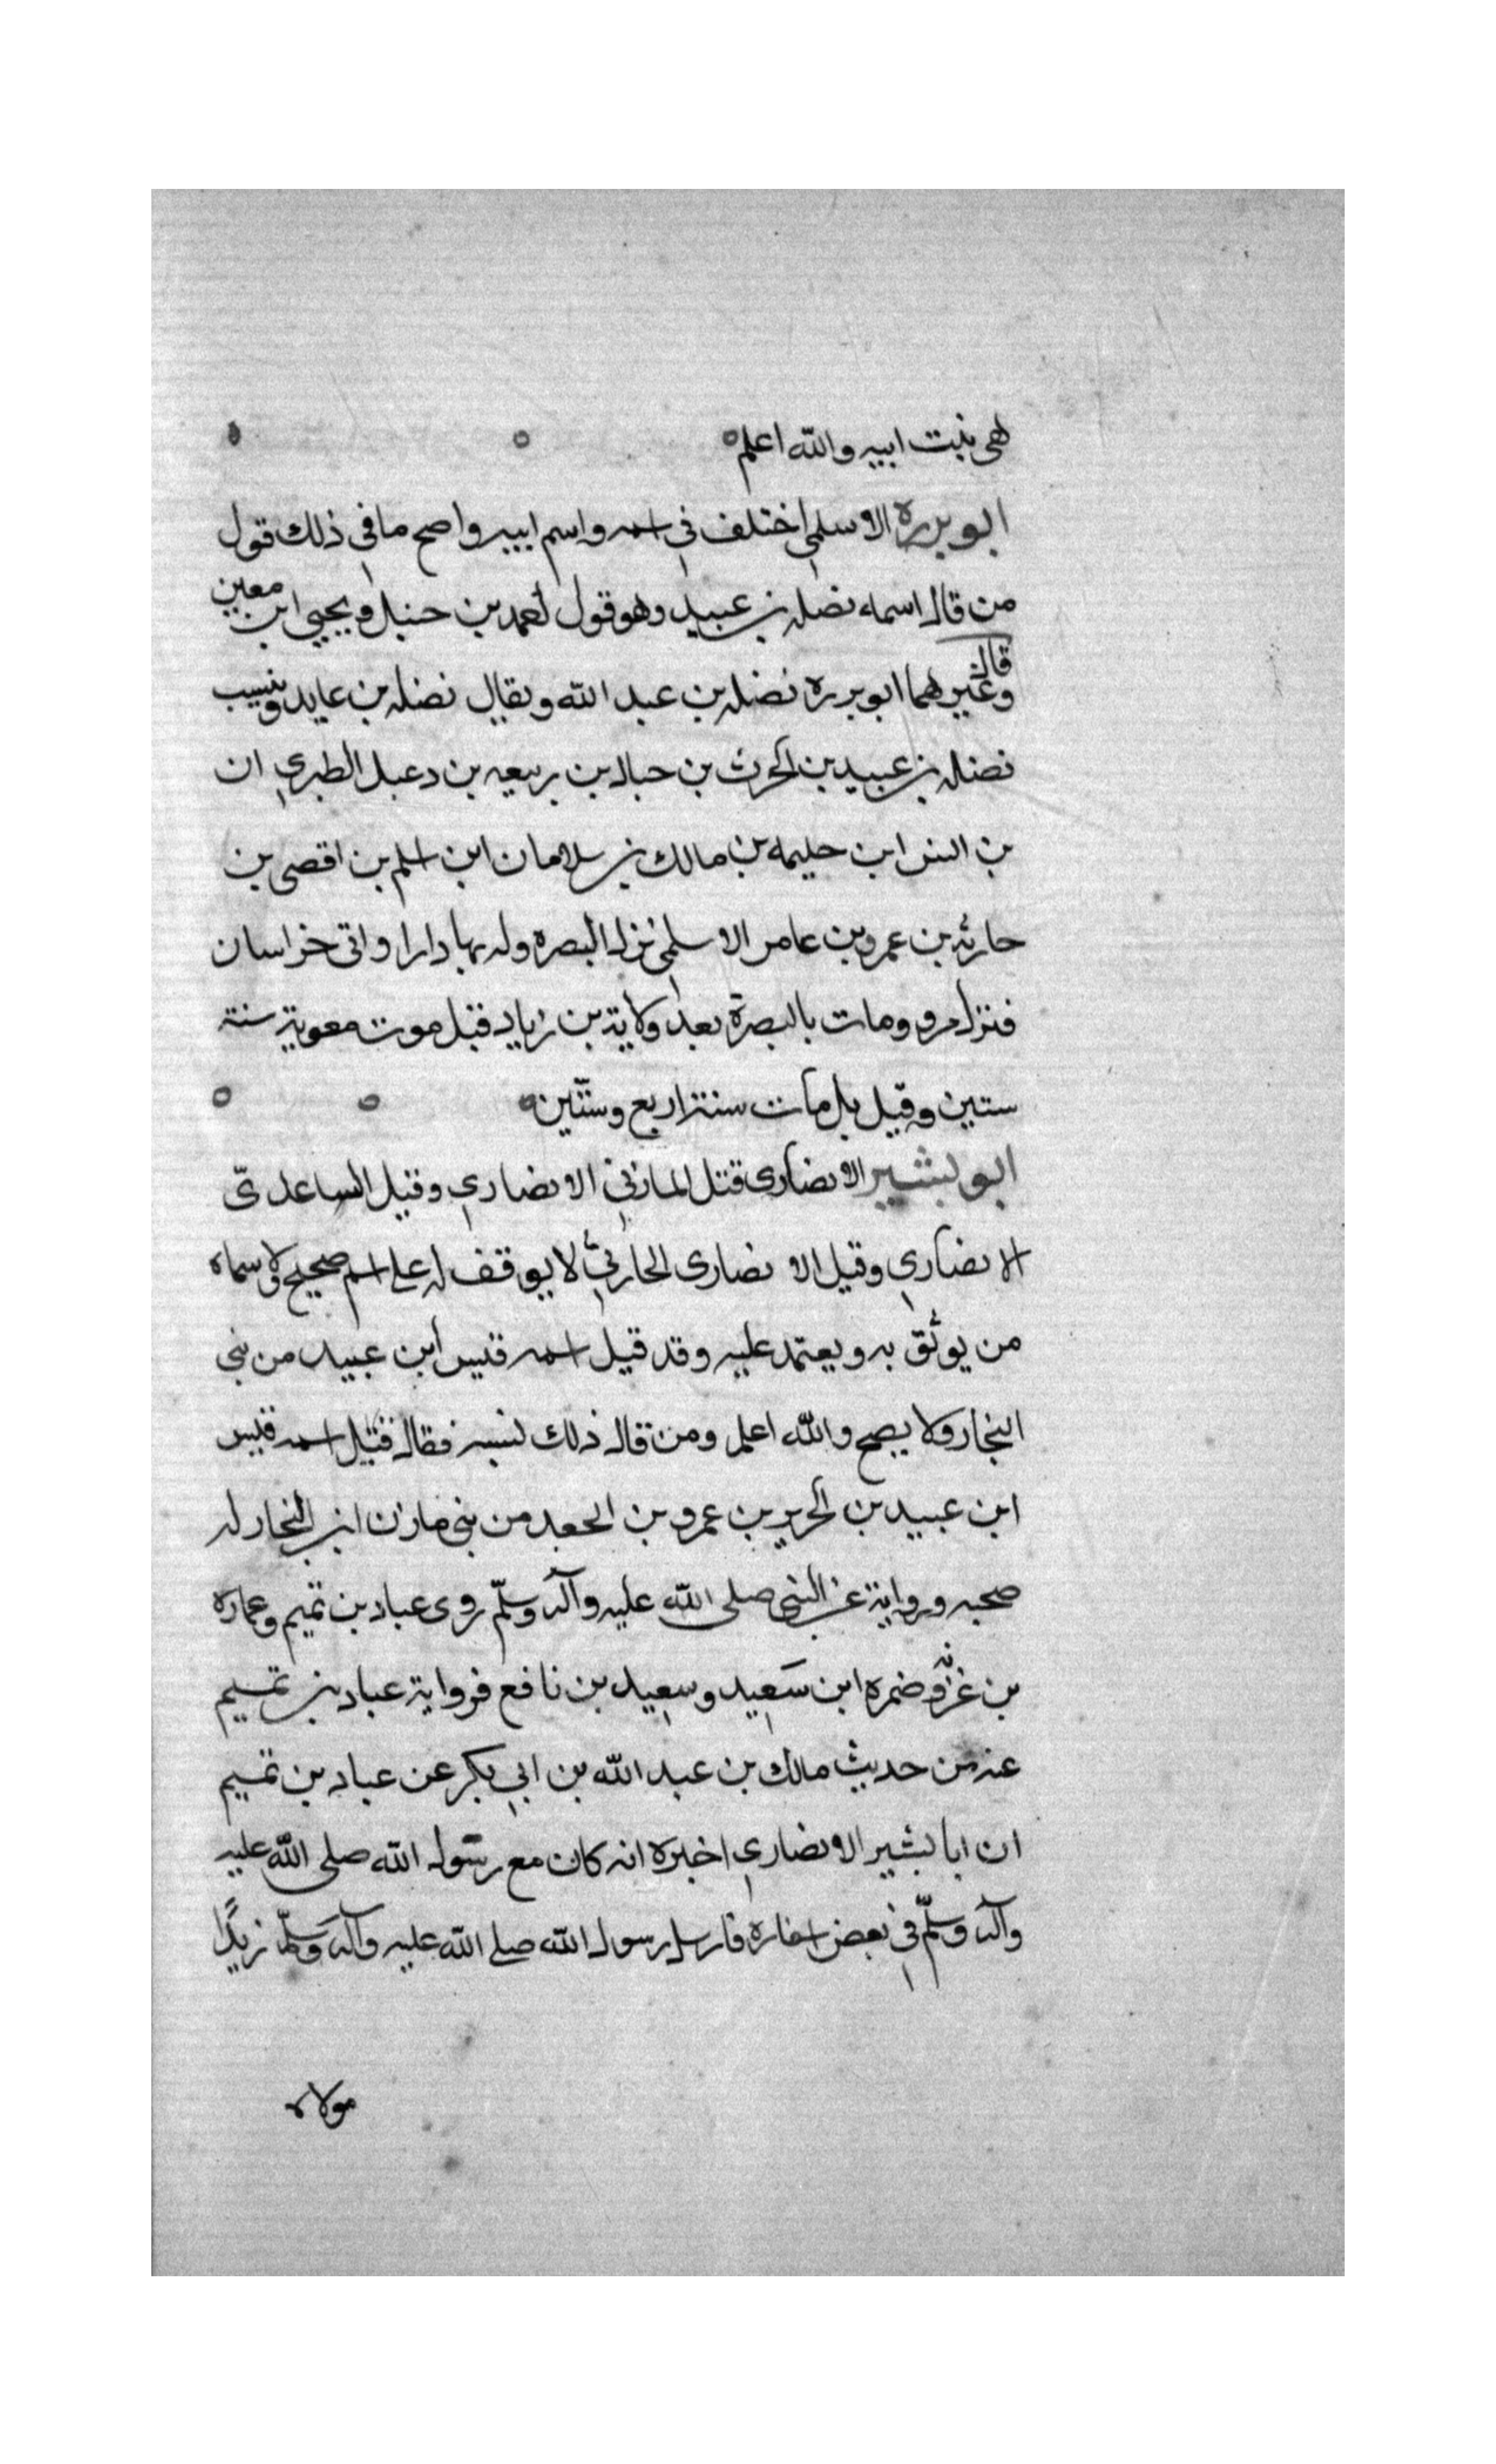 هى بنت ابيه والله اعلم
ابو برزه الاسلمي اختلف في اسمه واسم ابيه واصح ما في ذلك قول
من قال اسماء نضله بن عبيد وهو قول احمد بن حنبل ويحيى ابن معين
وقال غيرهما ابو برزه نضله بن عبد الله ويقال نضله بن عايد وينسب
نضله بن عبيد بن الحرث بن حبال بن ربيعه بن دعبل الطبري ان
بن انس ابن حليمه بن مالك بن سلامان ابن اسلم بن اقصى بن
حارثه بن عمرو بن عامر الاسلمي نزل البصره وله بها دارا واتى خراسان
فنزل مرو ومات بالبصرة بعد ولاية بن زياد قبل موت معوية سنة
ستين وقيل بل مات سنة اربع وستين
ابو بشير الانصارى قتل المازني الانصاري وقيل الساعدىّ
الانصاري وقيل الانصارى الحارثي لا يوقف له على اسم صحيح ولا سماه
من يوثق به ويعتمد عليه وقد قيل اسمه قيس ابن عبيد من بني
النجار ولا يصح والله اعلم ومن قال ذلك نسبه فقال قتيل اسمه قيس
ابن عبيد بن الحرير بن عمرو بن الجعد من بني مازن ابن النجار له
صحبه ورواية عن النبي صلى الله عليه وآله وسلّم روى عباد بن تميم وعماره
بن غزيه وضمره ابن سَعيد وسعيد بن نافع فرواية عباد بن تميم
عنه من حديث مالك بن عبد الله بن ابي بكر عن عباد بن تميم
ان ابا بشير الانصاري اخبره انه كان مع رسول الله صلى الله عليه
وآله وسلّم في بعض اسفاره فارسل رسول الله صلى الله عليه وآله وسَلّم زيدًا
مولاه